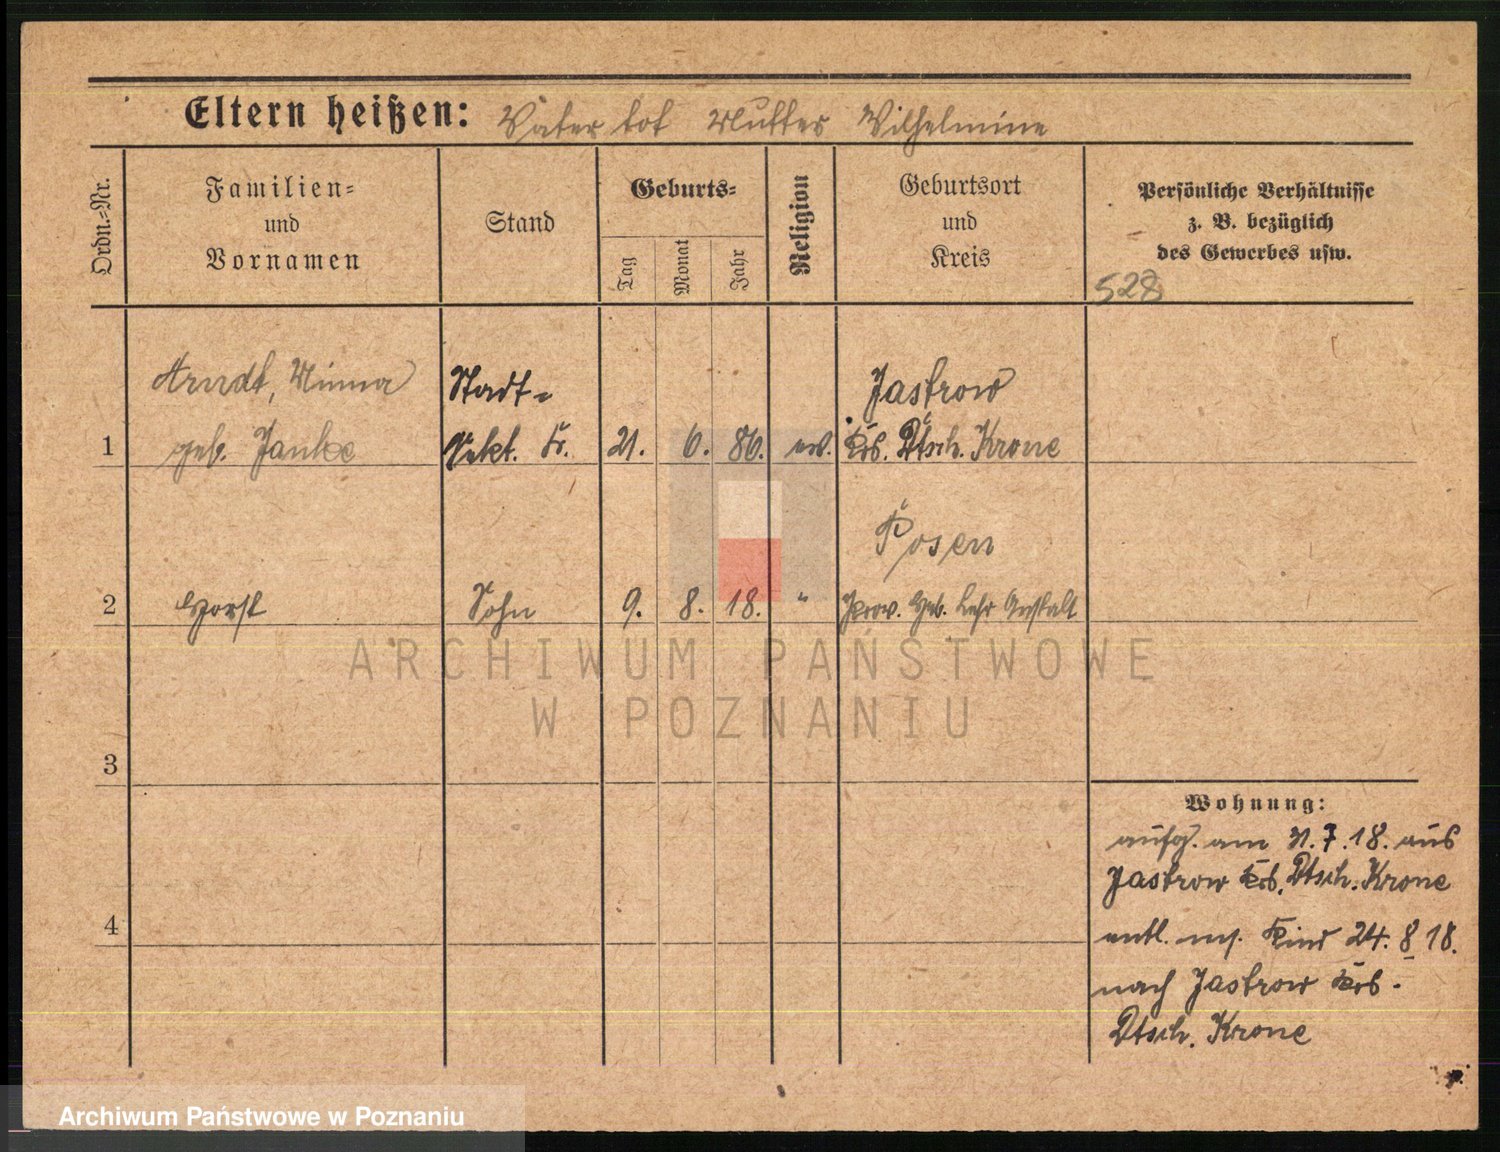 Eltern heißen: Vater tot Mutter Wilhelmine
Ordn.-Nr.
Familien-
und
Vornamen
Stand
Geburts-
Tag
Monat
Jahr
Religion
Geburtsort
und
Kreis
Persönliche Verhältnisse
z. B. bezüglich
des Gewerbes usw.
528
Arndt, Minna Stadt- Jastrow
1 geb. Janke Sekt. Fr. 21. 6. 86. ev. Krs. Dtsch. Krone
Posen
2 Horst Sohn 9. 8. 18. " Prov. Heb. Lehr Anstalt
3
Wohnung:
aufg. am 21.7.18. aus
Jastrow Krs. Dtsch. Krone
4
entl. m. Kind 24. 8 18.
nach Jastrow Krs.
Dtsch. Krone
ARCHIWUM PAŃSTWOWE
W POZNANIU
Archiwum Państwowe w Poznaniu